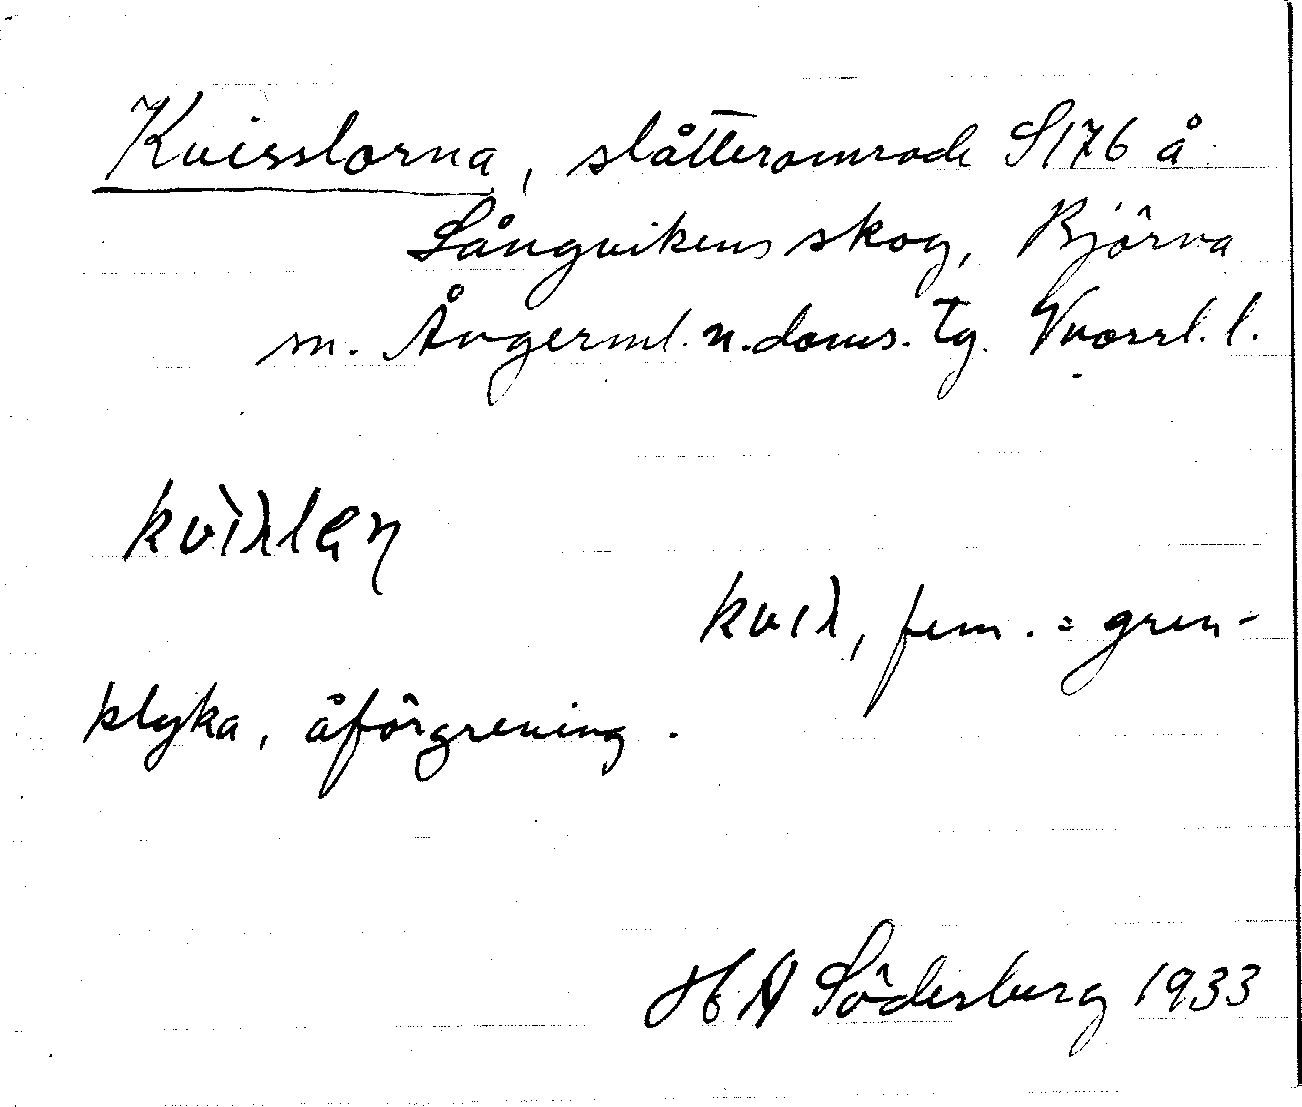 Kvisslorna, slåtterområde S176 å
Långvikens skog, Björna
sn. Ångerml. n. doms. tg. Vvosrl. l.
kvìλlan
kviλ, fem. = gren-
klyka, åförgrening.
H A Söderberg 1933